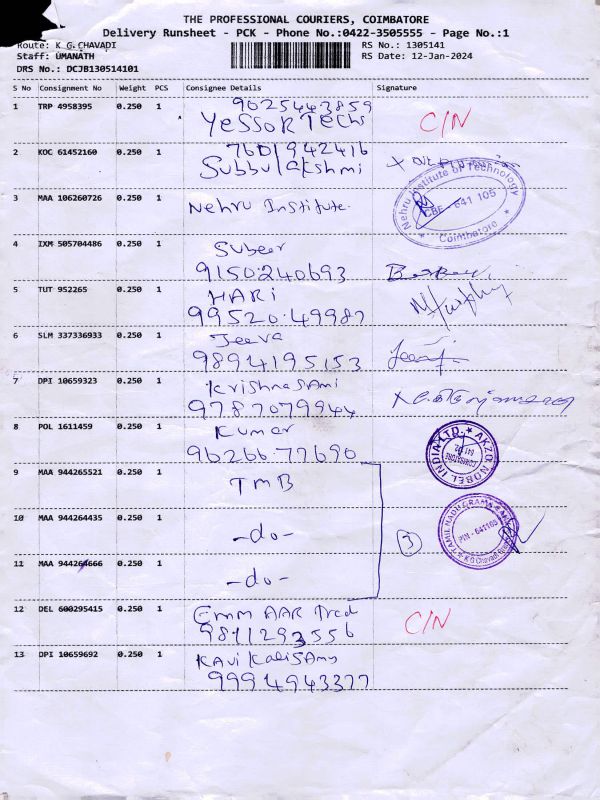 THE PROFESSIONAL COURIERS, COIMBATORE
Delivery Runsheet - PCK - Phone No.:0422-3505555 - Page No.:1
Route: K G.CHAVADI
RS No.: 1305141
Staff: UMANATH
RS Date: 12-Jan-2024
DRS No.: DCJB130514101
S No Consignment No Weight PCS Consignee Details Signature
1 TRP 4958395 0.250 1 9025443859
Yessor Techs C/N
2 KOC 61452160 0.250 1 7601942416
Subbulakshmi
3 MAA 106260726 0.250 1 Nehru Institute.
Nehru Institute of Technology
CBE - 641 105
Coimbatore
4 IXM 505704486 0.250 1 Subeer
9150240693
5 TUT 952265 0.250 1 HARI
99520 49987
6 SLM 337336933 0.250 1 Jeeva
9894195153
7 DPI 10659323 0.250 1 KrishnaSAmi
9787079944
8 POL 1611459 0.250 1 Kumar
9626677690
AKZO NOBEL INDIA LTD.
COIMBATORE
9 MAA 944265521 0.250 1 TMB
10 MAA 944264435 0.250 1 -do-
3
TAMIL NADU GRAMA BANK
PIN - 641105
K.G Chavadi
11 MAA 944264666 0.250 1 -do-
12 DEL 600295415 0.250 1 Emm AAR Tred
9811293556 C/N
13 DPI 10659692 0.250 1 KAvi KaliSAmy
9994943377